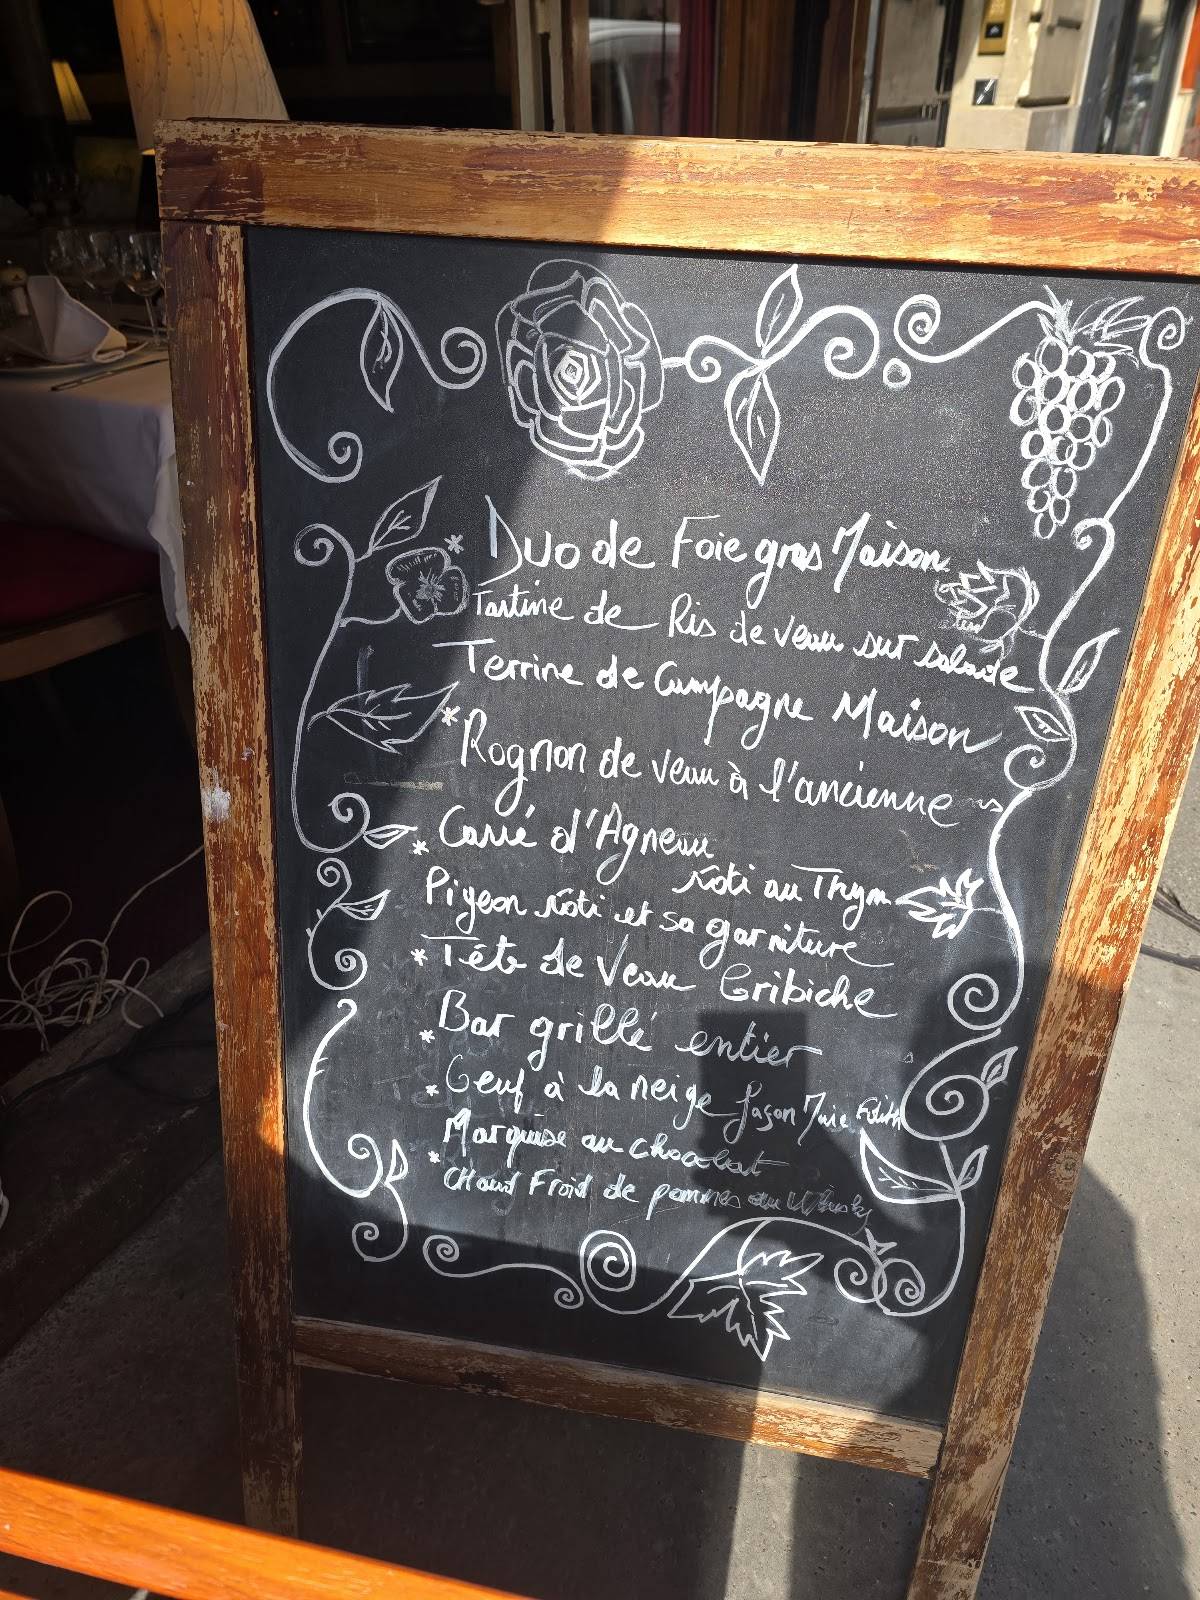 * Duo de Foie gras Maison
Tartine de Ris de veau sur salade
Terrine de Campagne Maison
* Rognon de veau à l'ancienne
Carré d'Agneau
* rôti au Thym
Pigeon rôti et sa garniture
* Tête de Veau Gribiche
Bar grillé entier
* Oeuf à la neige façon Marie Edith
* Marquise au chocolat
* Chaud Froid de pommes au Whisky